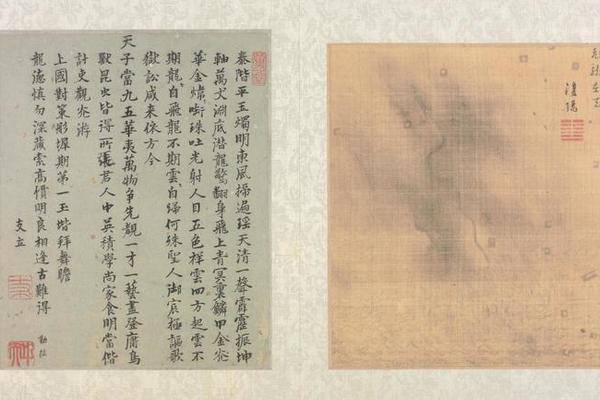 泰階平玉燭明東風掃遍瑶天清一聲霹靂振坤
軸萬丈淵底潛龍驚翻身飛上青冥裏鱗甲金光
華金煒珠吐光射人目五色祥雲四方起雲不
期龍自飛龍不期雲自歸何殊聖人御宸極謳歌
獄訟咸来依方今
天子當九五華夷萬物爭先覩一才一藝盡登庸鳥
獸昆虫皆得所張君人中英積學尚家食明當偕
計吏觀光游
上國對策彤墀期第一玉堦拜舞瞻
龍德慎勿深藏雲高慣明良相逢古難得
支立